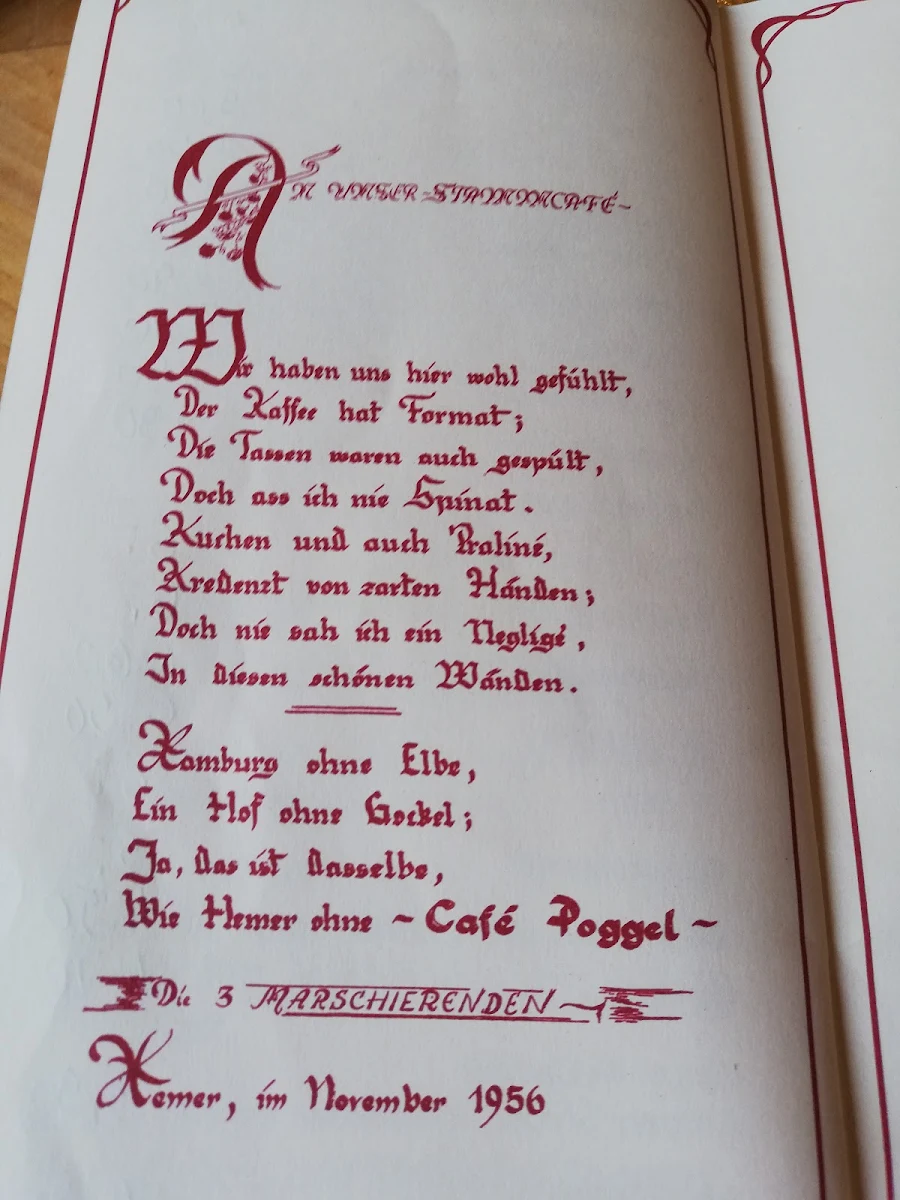 AN UNSER -STAMMCAFÉ-
Wir haben uns hier wohl gefühlt,
Der Kaffee hat Format;
Die Tassen waren auch gespült,
Doch ass ich nie Spinat.
Kuchen und auch Praliné,
Kredenzt von zarten Händen;
Doch nie sah ich ein Negligé,
In diesen schönen Wänden.
Hamburg ohne Elbe,
Ein Hof ohne Gockel;
Ja, das ist dasselbe,
Wie Hemer ohne ~ Café Poggel ~
Die 3 MARSCHIERENDEN
Hemer, im November 1956